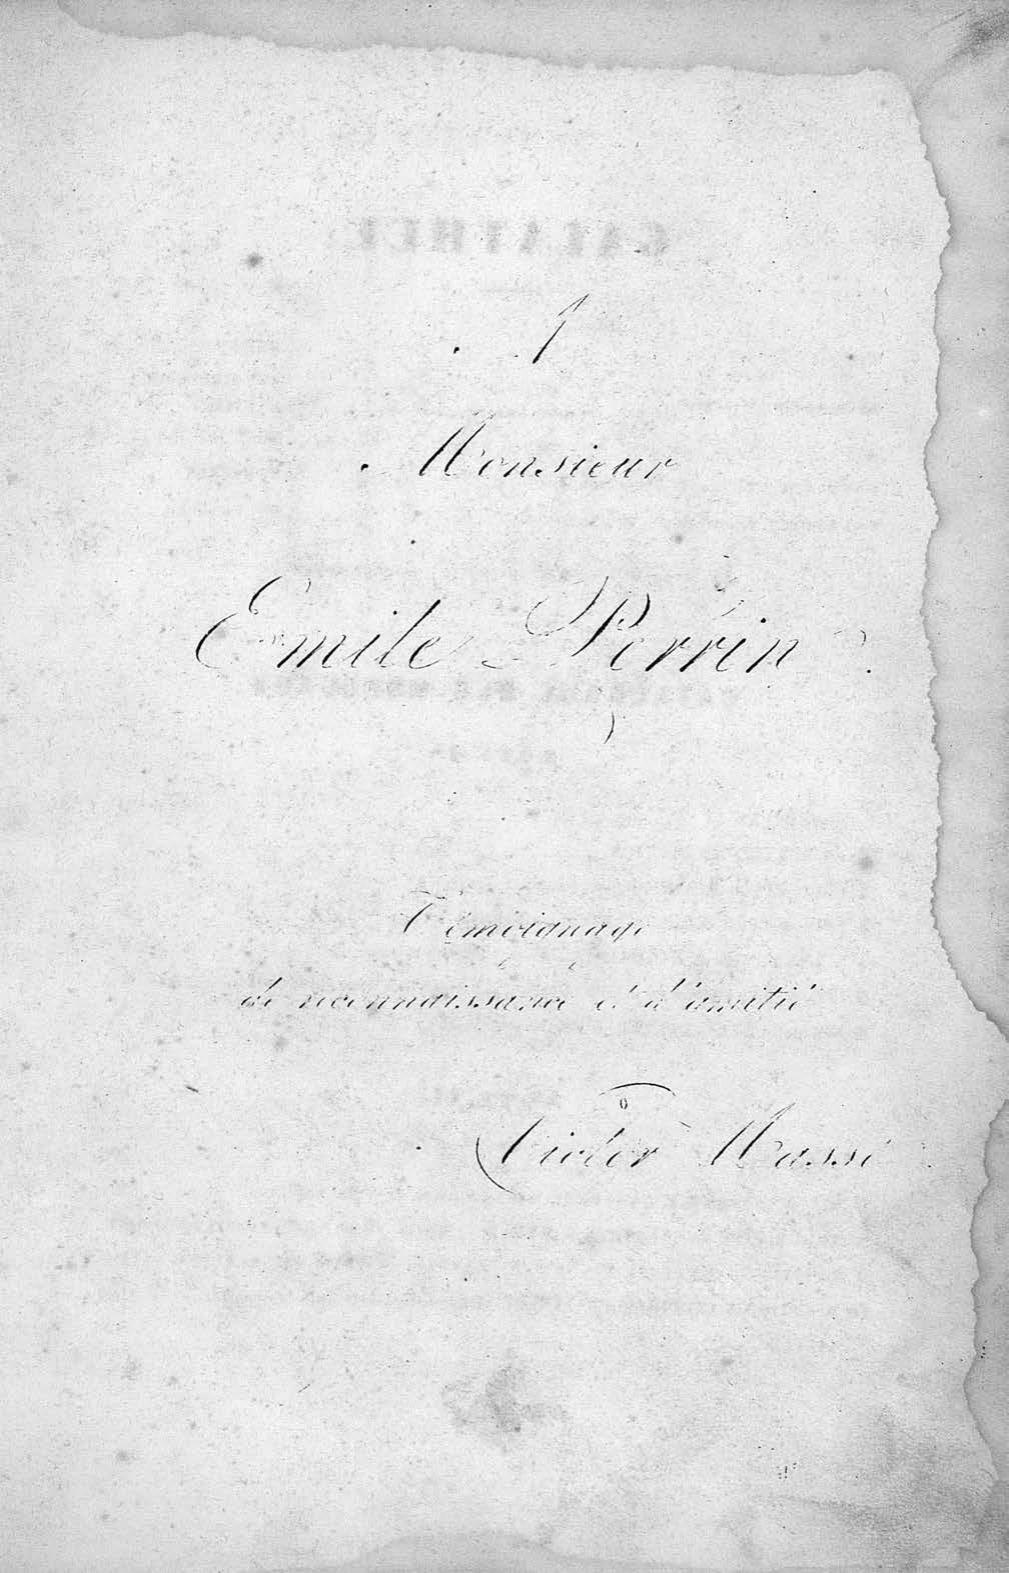 A
Monsieur
Emile Perrin
Témoignage
de reconnaissance et d'amitié
Victor Massé